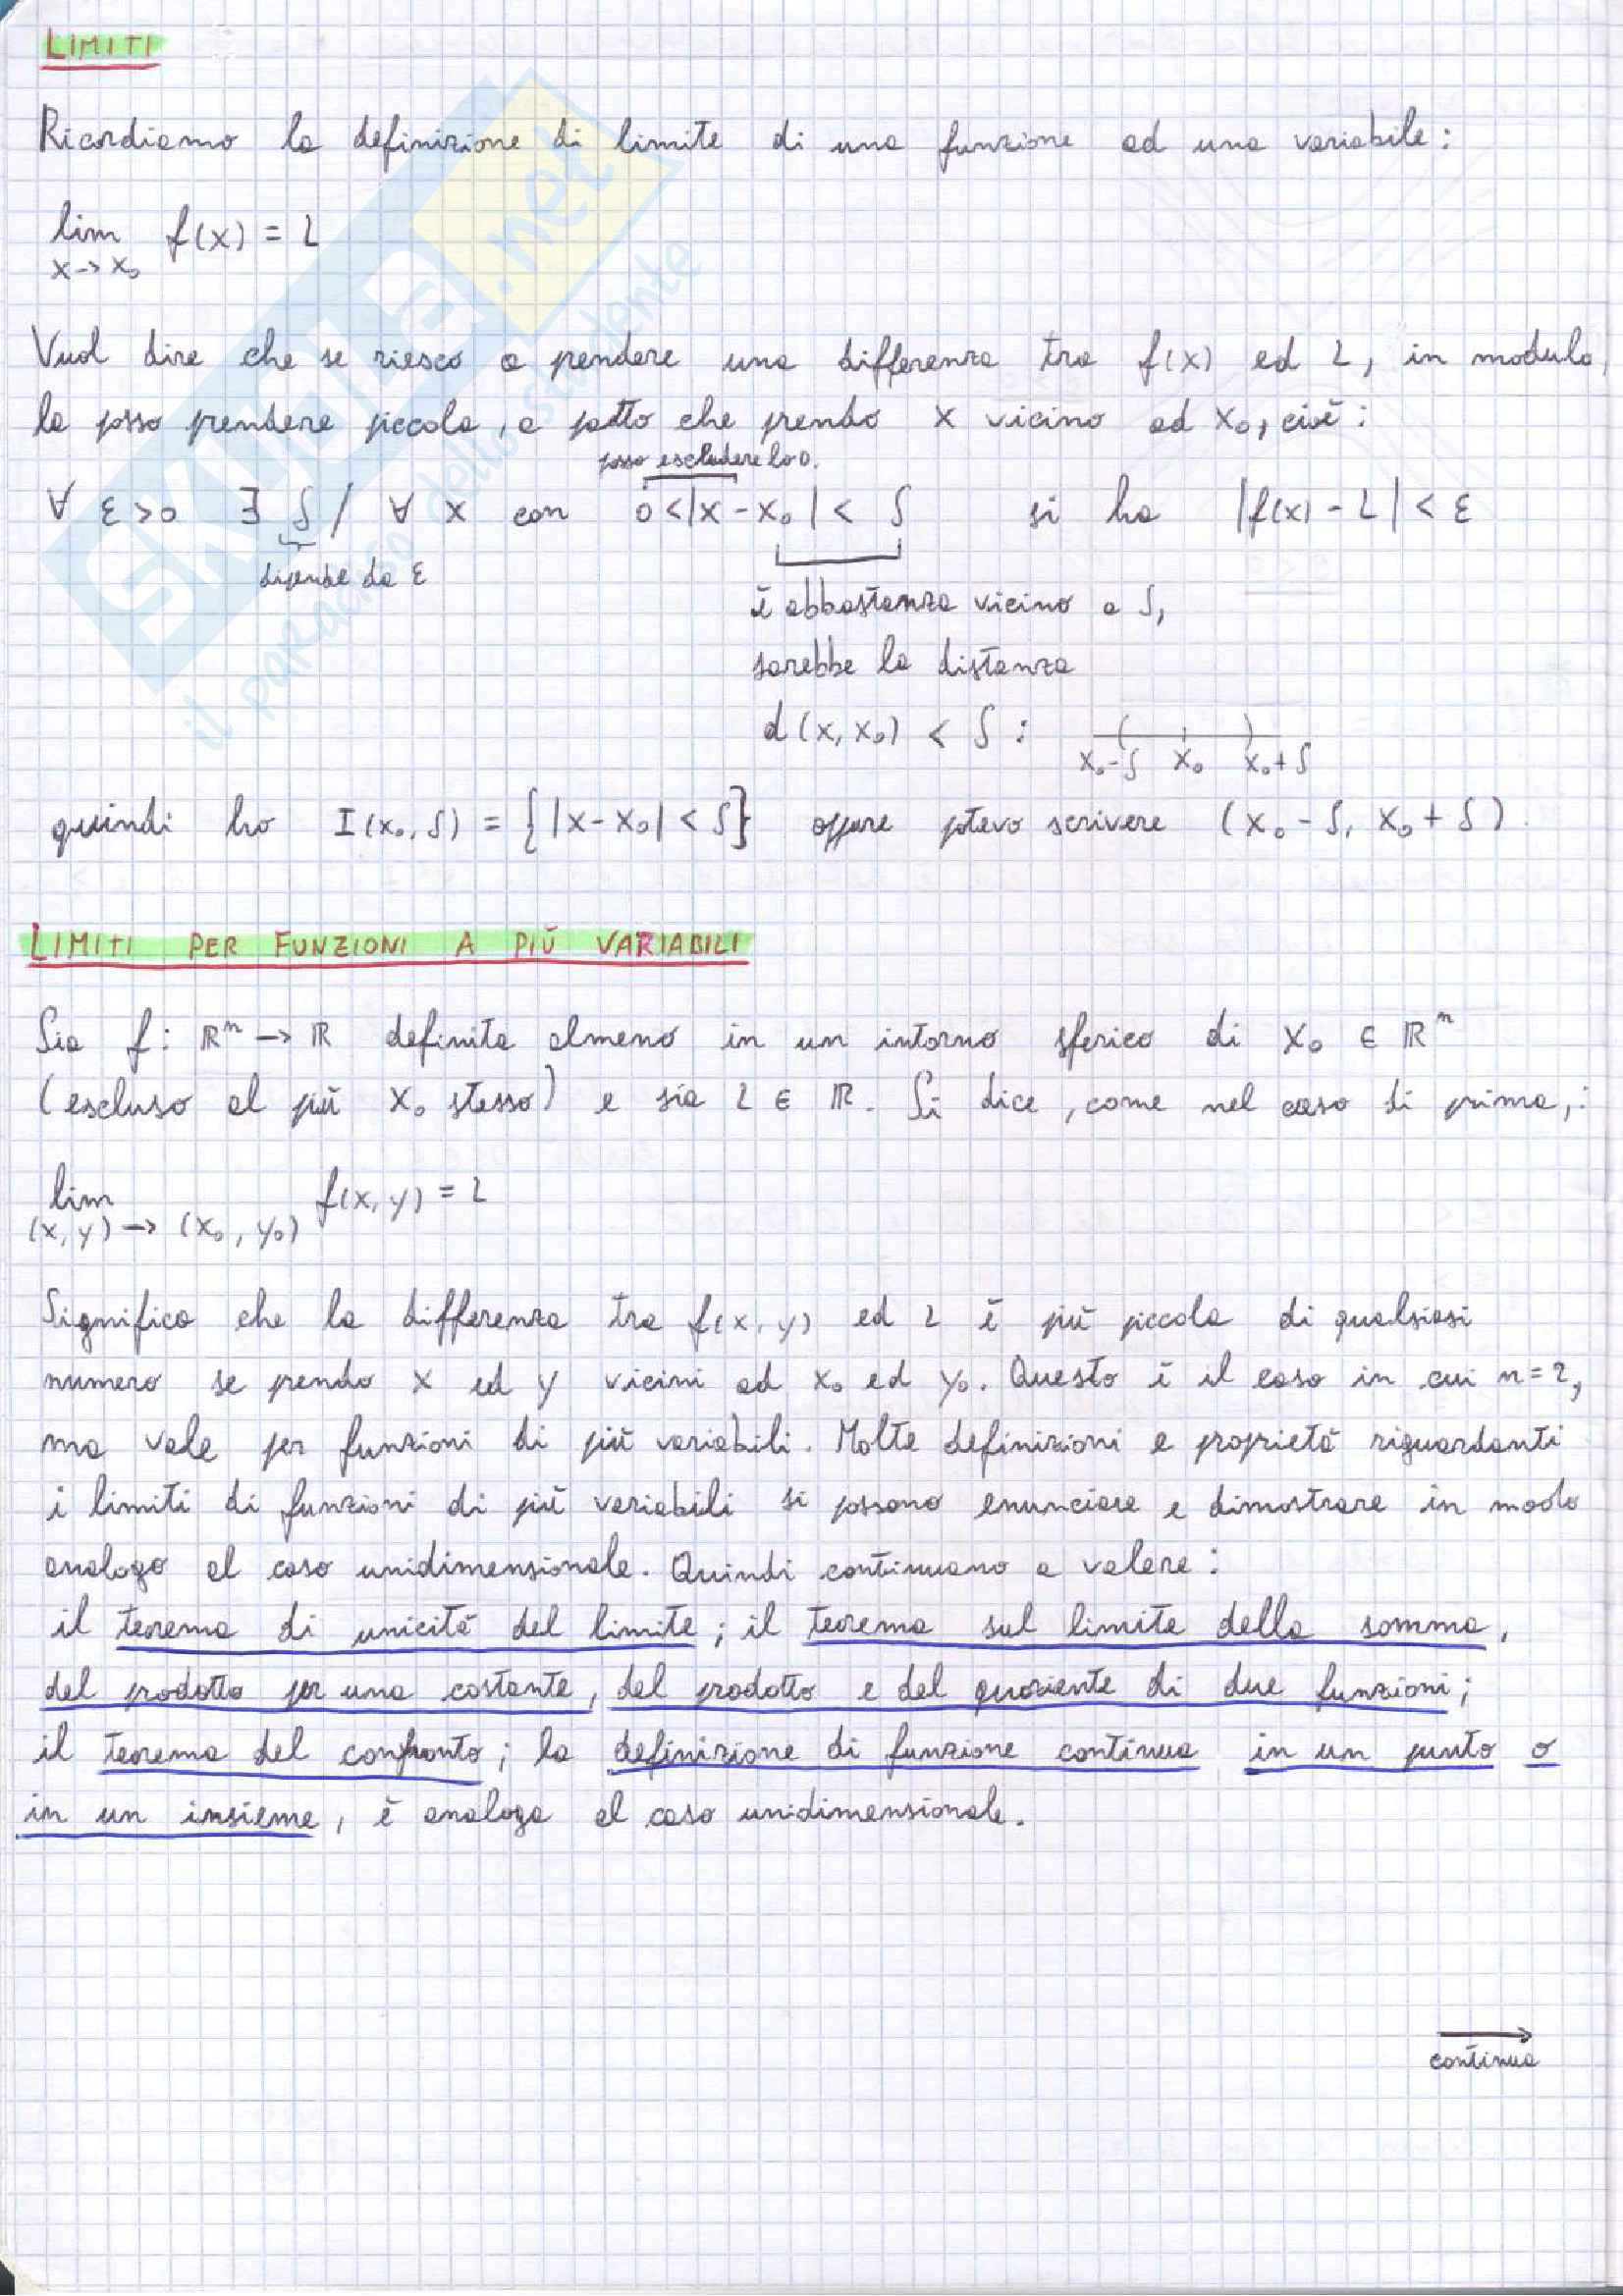 LIMITI
Ricordiamo la definizione di limite di una funzione ad una variabile:
lim f(x) = L
x→x₀
Vuol dire che se riesco a pendere una differenza tra f(x) ed L, in modulo,
la posso prendere piccola, a patto che prendo x vicino ad x₀, cioè:
posso escludere lo 0.
∀ ε>0 ∃ δ / ∀ x con 0<|x-x₀|< δ si ha |f(x)-L|< ε
dipende da ε
è abbastanza vicino a δ,
sarebbe la distanza
d(x,x₀) < δ :
x₀-δ x₀ x₀+δ
quindi ho I(x₀,δ) = {|x-x₀|<δ} oppure potevo scrivere (x₀-δ, x₀+δ).
LIMITI PER FUNZIONI A PIÙ VARIABILI
Sia f: ℝⁿ → ℝ definita almeno in un intorno sferico di x₀ ∈ ℝⁿ
(escluso al più x₀ stesso) e sia L ∈ ℝ. Si dice, come nel caso di prima,:
lim f(x,y) = L
(x,y) → (x₀,y₀)
Significa che la differenza tra f(x,y) ed L è più piccola di qualsiasi
numero se pendo x ed y vicini ad x₀ ed y₀. Questo è il caso in cui n=2,
ma vale per funzioni di più variabili. Molte definizioni e proprietà riguardanti
i limiti di funzioni di più variabili si possono enunciare e dimostrare in modo
analogo al caso unidimensionale. Quindi continuano a valere:
il teorema di unicità del limite; il teorema sul limite della somma,
del prodotto per una costante, del prodotto e del quoziente di due funzioni;
il teorema del confronto; la definizione di funzione continua in un punto o
in un insieme, è analoga al caso unidimensionale.
continua
SKUOLA.net
il paradiso dello studente